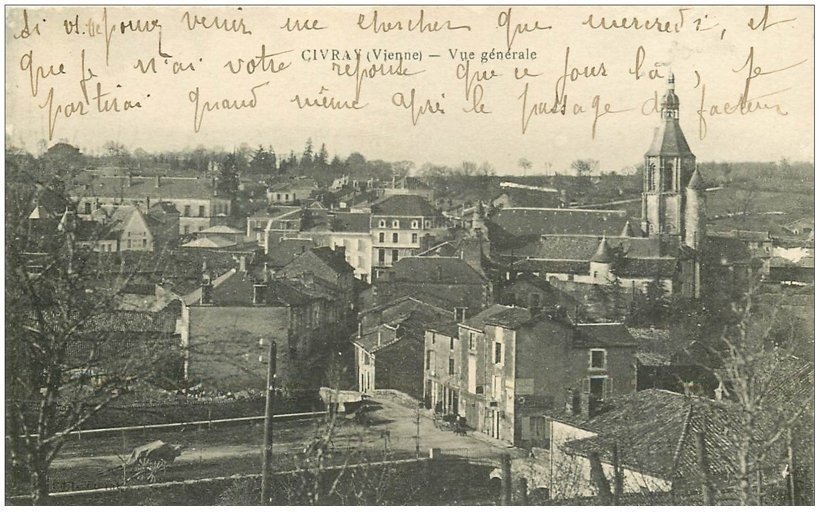 si vs pouvez venir me chercher que mercredi, et
CIVRAY (Vienne) — Vue générale
que je n'ai votre réponse que ce jour là, je
partirai quand même après le passage du facteur